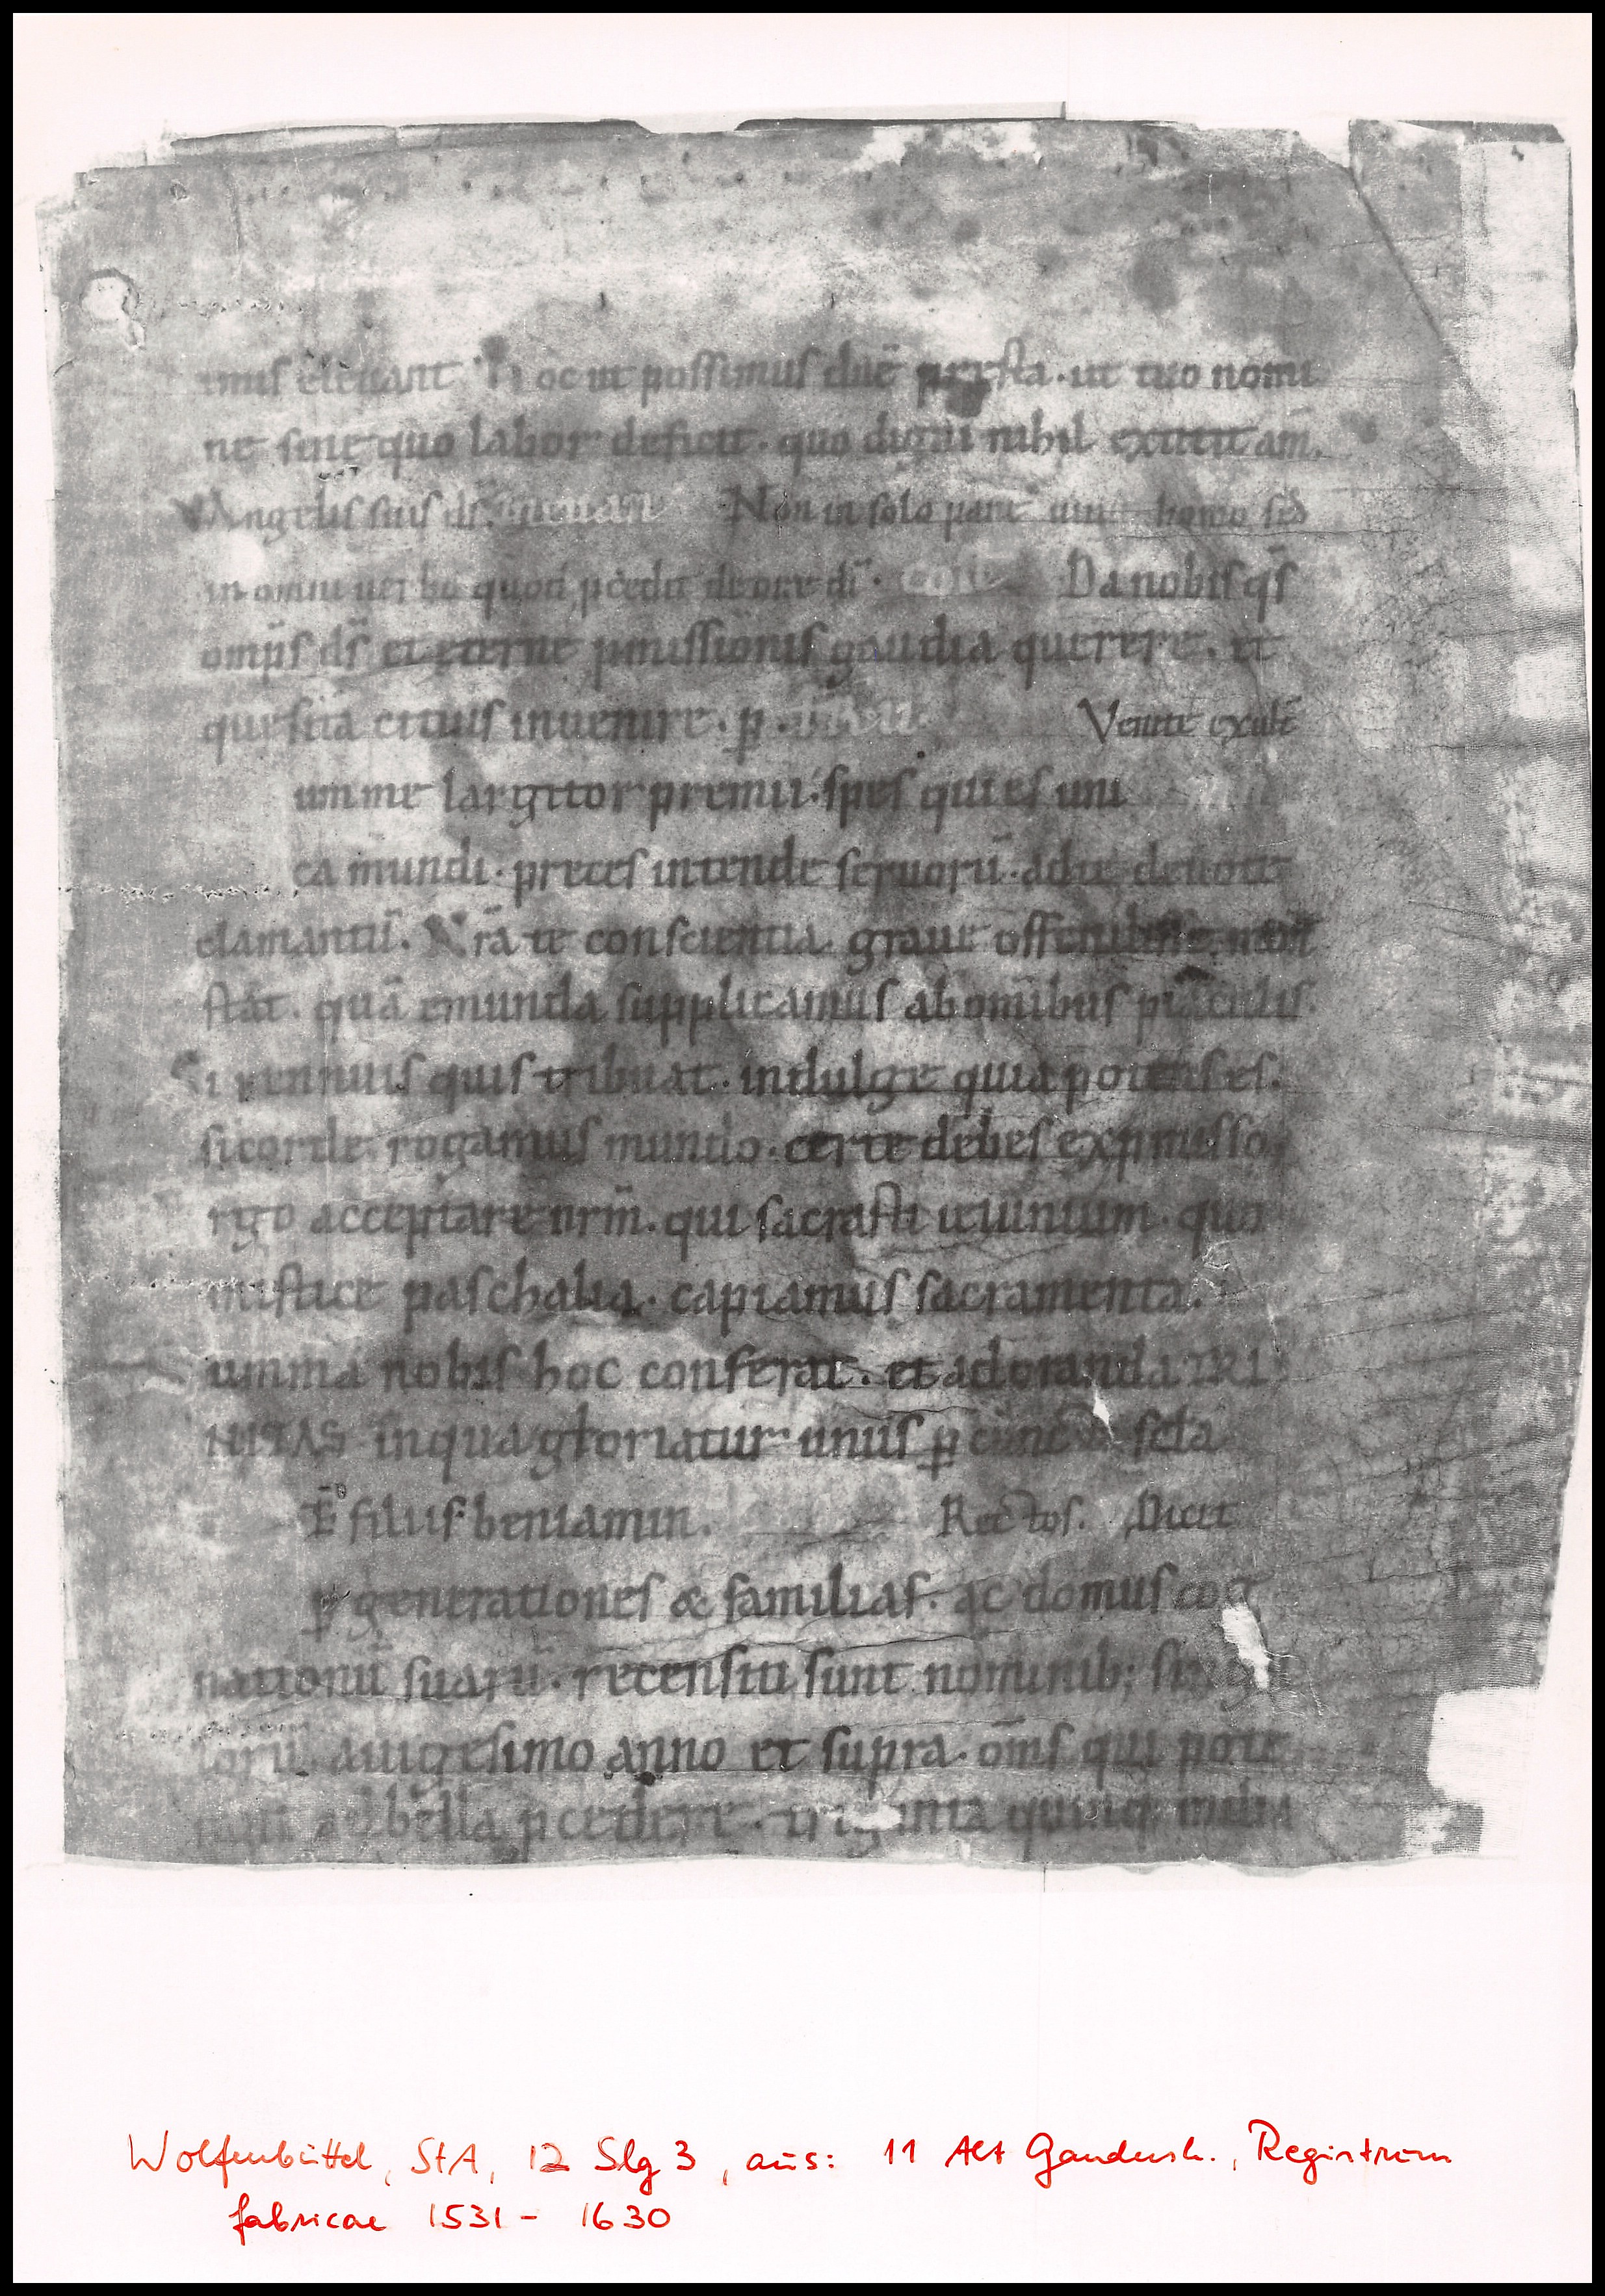 mus eleuant Hoc ut possimus dn̄e presta · ut tuo nomi
ne sene quo labor deficit · quo digni nihil extitit am.
Angelis suis ds̄. Non in solo pane uiuit homo sed
in omni uerbo quod p̄cedit de ore dī · Da nobis qs̄
omp̄s ds̄ et eterne p̄missionis gaudia querere · et
quesita citius inuenire · p̱ · Venite exult̄
umme largitor premii · spes qui es uni
ca mundi · preces intende seruorū · ad te deuote
clamantū. Nr̄a te conscientia graue offendisse mon
strat · quā emunda supplicamus ab om̄ibus piaculis.
Si rennuis quis tribuat · indulge quia potens es.
si corde rogamus mundo · certe debes ex p̄misso.
rgo acceptare nr̄m · qui sacrasti ieiunium · quo
mistice paschalia · capiamus sacramenta.
umma nobis hoc conferat · et adoranda TRI
NITAS in qua gloriatur unus p̱ cuncta sc̄la
E filiis beniamin. Rectos. Dicit
p̱ generationes & familias · ac domus cog
nationū suarū · recensiti sunt nominib; singu
lorū a uigesimo anno et supra · om̄s qui pote
rant ad bella p̄cedere · triginta quinq; milia
Wolfenbüttel, StA, 12 Slg 3, aus: 11 Alt Gandersh., Registrum
fabricae 1531 - 1630